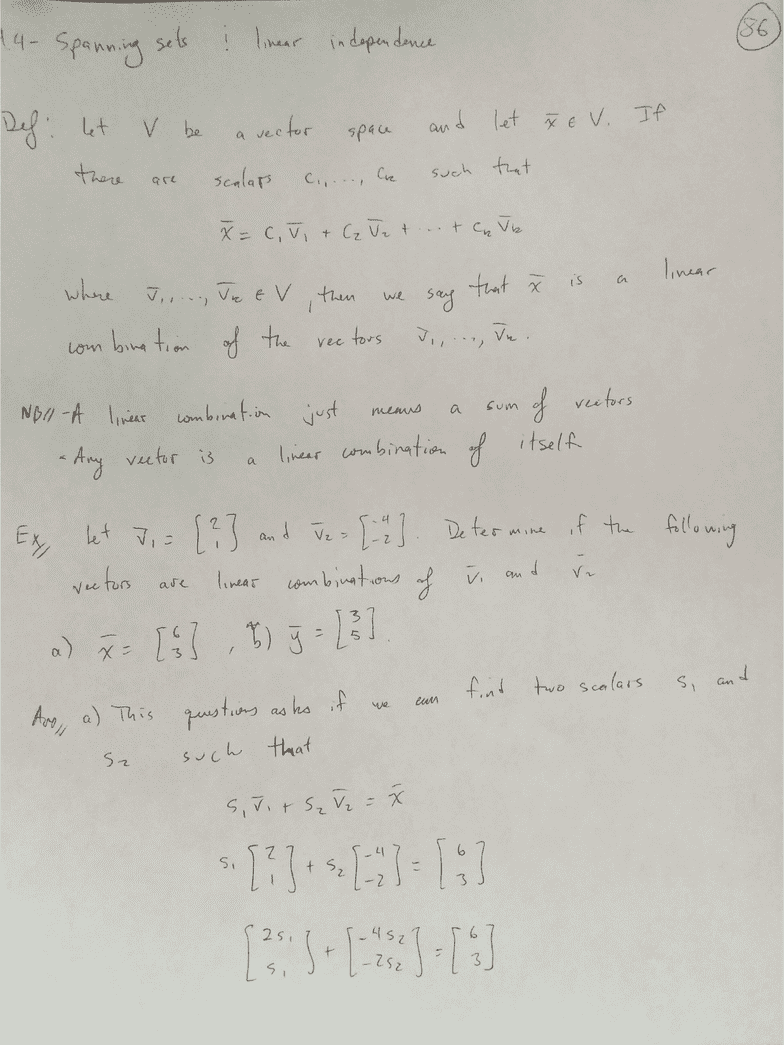 1.4- Spanning sets & linear independence
86
Def: let V be a vector space and let x̄ ∈ V. If
there are scalars c₁,..., cₖ such that
x̄ = c₁v̄₁ + c₂v̄₂ + ... + cₖv̄ₖ
where v̄₁,..., v̄ₖ ∈ V, then we say that x̄ is a linear
combination of the vectors v̄₁,..., v̄ₖ.
NB// -A linear combination just means a sum of vectors
- Any vector is a linear combination of itself
Ex// let v̄₁ = [2 1] and v̄₂ = [-4 -2]. Determine if the following
vectors are linear combinations of v̄₁ and v̄₂
a) x̄ = [6 3], b) ȳ = [3 5].
Ans// a) This questions asks if we can find two scalars s₁ and
s₂ such that
s₁v̄₁ + s₂v̄₂ = x̄
s₁[2 1] + s₂[-4 -2] = [6 3]
[2s₁ s₁] + [-4s₂ -2s₂] = [6 3]